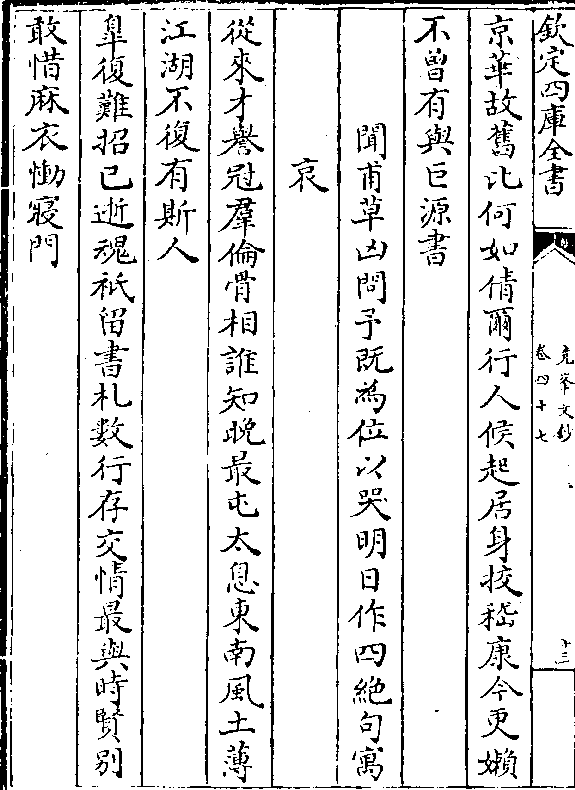 欽定四庫全書
堯峯文鈔
卷四十七
十三
京華故舊比何如倩爾行人候起居身挍嵇康今更嬾
不曾有與巨源書
聞甫草凶問予既為位以哭明日作四絶句寓
哀
從來才譽冠羣倫骨相誰知晚最屯太息東南風土薄
江湖不復有斯人
臯復難招已逝魂祇留書札數行存交情最與時賢别
敢惜麻衣慟寢門